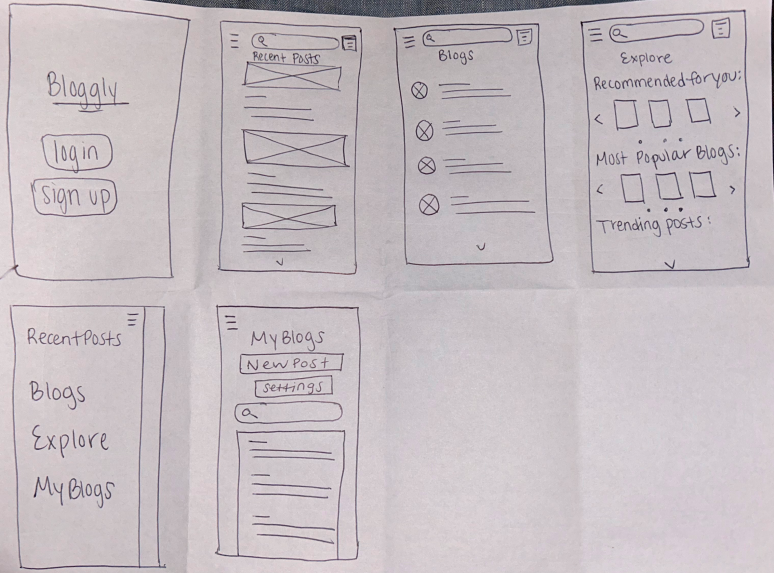 Bloggly
login
sign up
Recent Posts
Blogs
Explore
Recommended for you:
Most Popular Blogs:
Trending posts:
Recent Posts
Blogs
Explore
My Blogs
My Blogs
New Post
settings